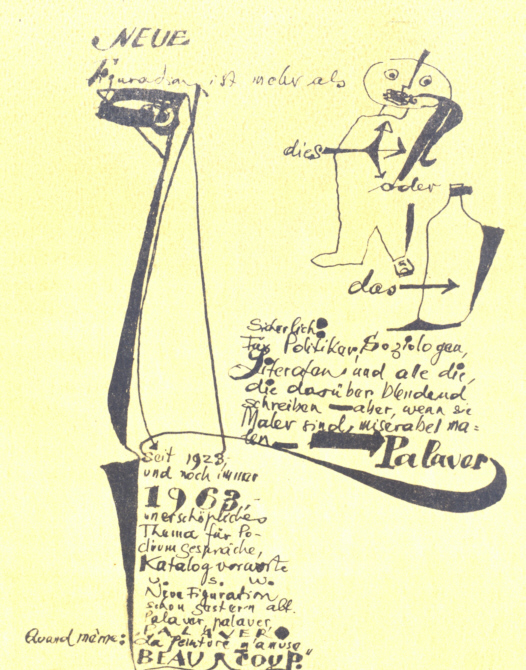 NEUE
Figuration ist mehr als
dies
oder
das
Sicherlich:
Für Politiker, Soziologen,
Literaten und alle die,
die darüber blendend
schreiben — aber, wenn sie
Maler sind, miserabel ma=
len — Palaver
Seit 1928,
und noch immer
1963,
unerschöpfliches
Thema für Po-
diumgespräche,
Katalogvorworte
u. s. w.
Neue Figuration
schon gestern alt.
Palaver, palaver,
PALAVER
Quand même: "La peinture m'amuse
BEAUCOUP."